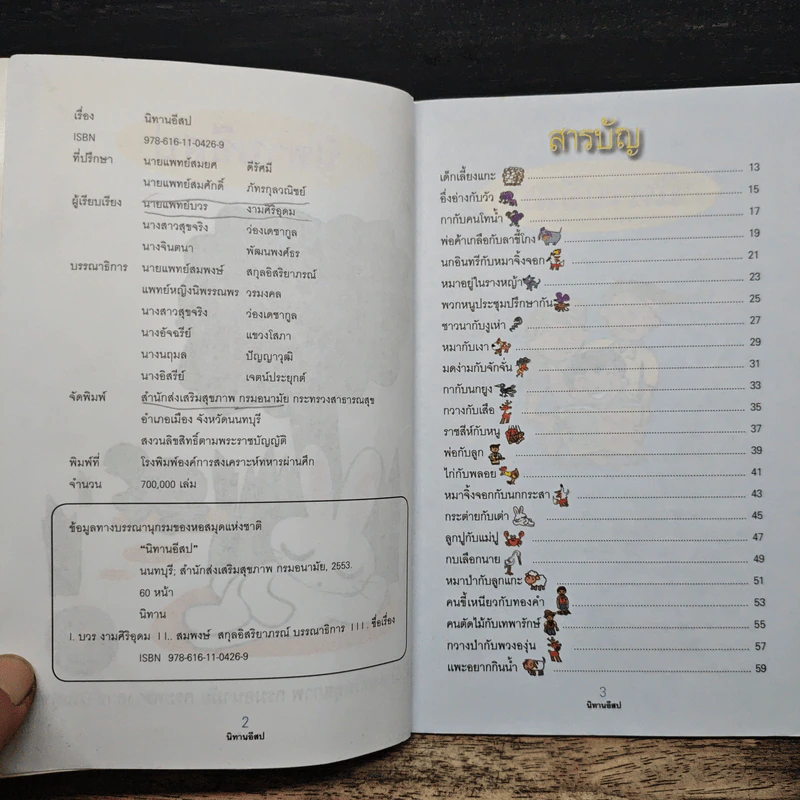 เรื่อง นิทานอีสป
ISBN 978-616-11-0426-9
ที่ปรึกษา นายแพทย์สมยศ ดีรัศมี
นายแพทย์สมศักดิ์ ภัทรกุลวณิชย์
ผู้เรียบเรียง นายแพทย์บวร งามศิริอุดม
นางสาวสุขจริง ว่องเดชากูล
นางจินตนา พัฒนพงศ์ธร
บรรณาธิการ นายแพทย์สมพงษ์ สกุลอิสริยาภรณ์
แพทย์หญิงนิพรรณพร วรมงคล
นางสาวสุขจริง ว่องเดชากูล
นางอัจฉรีย์ แขวงโสภา
นางนฤมล ปัญญาวุฒิ
นางอิสรีย์ เจตน์ประยุกต์
จัดพิมพ์ สำนักส่งเสริมสุขภาพ กรมอนามัย กระทรวงสาธารณสุข
อำเภอเมือง จังหวัดนนทบุรี
สงวนลิขสิทธิ์ตามพระราชบัญญัติ
พิมพ์ที่ โรงพิมพ์องค์การสงเคราะห์ทหารผ่านศึก
จำนวน 700,000 เล่ม
ข้อมูลทางบรรณานุกรมของหอสมุดแห่งชาติ
“นิทานอีสป”
นนทบุรี; สำนักส่งเสริมสุขภาพ กรมอนามัย, 2553.
60 หน้า
นิทาน
I. บวร งามศิริอุดม II.. สมพงษ์ สกุลอิสริยาภรณ์ บรรณาธิการ III. ชื่อเรื่อง
ISBN 978-616-11-0426-9
2
นิทานอีสป
สารบัญ
เด็กเลี้ยงแกะ 13
อึ่งอ่างกับวัว 15
กากับคนโทน้ำ 17
พ่อค้าเกลือกับลาขี้โกง 19
นกอินทรีกับหมาจิ้งจอก 21
หมาอยู่ในรางหญ้า 23
พวกหนูประชุมปรึกษากัน 25
ชาวนากับงูเห่า 27
หมากับเงา 29
มดง่ามกับจักจั่น 31
กากับนกยูง 33
กวางกับเสือ 35
ราชสีห์กับหนู 37
พ่อกับลูก 39
ไก่กับพลอย 41
หมาจิ้งจอกกับนกกระสา 43
กระต่ายกับเต่า 45
ลูกปูกับแม่ปู 47
กบเลือกนาย 49
หมาป่ากับลูกแกะ 51
คนขี้เหนียวกับทองคำ 53
คนตัดไม้กับเทพารักษ์ 55
กวางป่ากับพวงองุ่น 57
แพะอยากกินน้ำ 59
3
นิทานอีสป